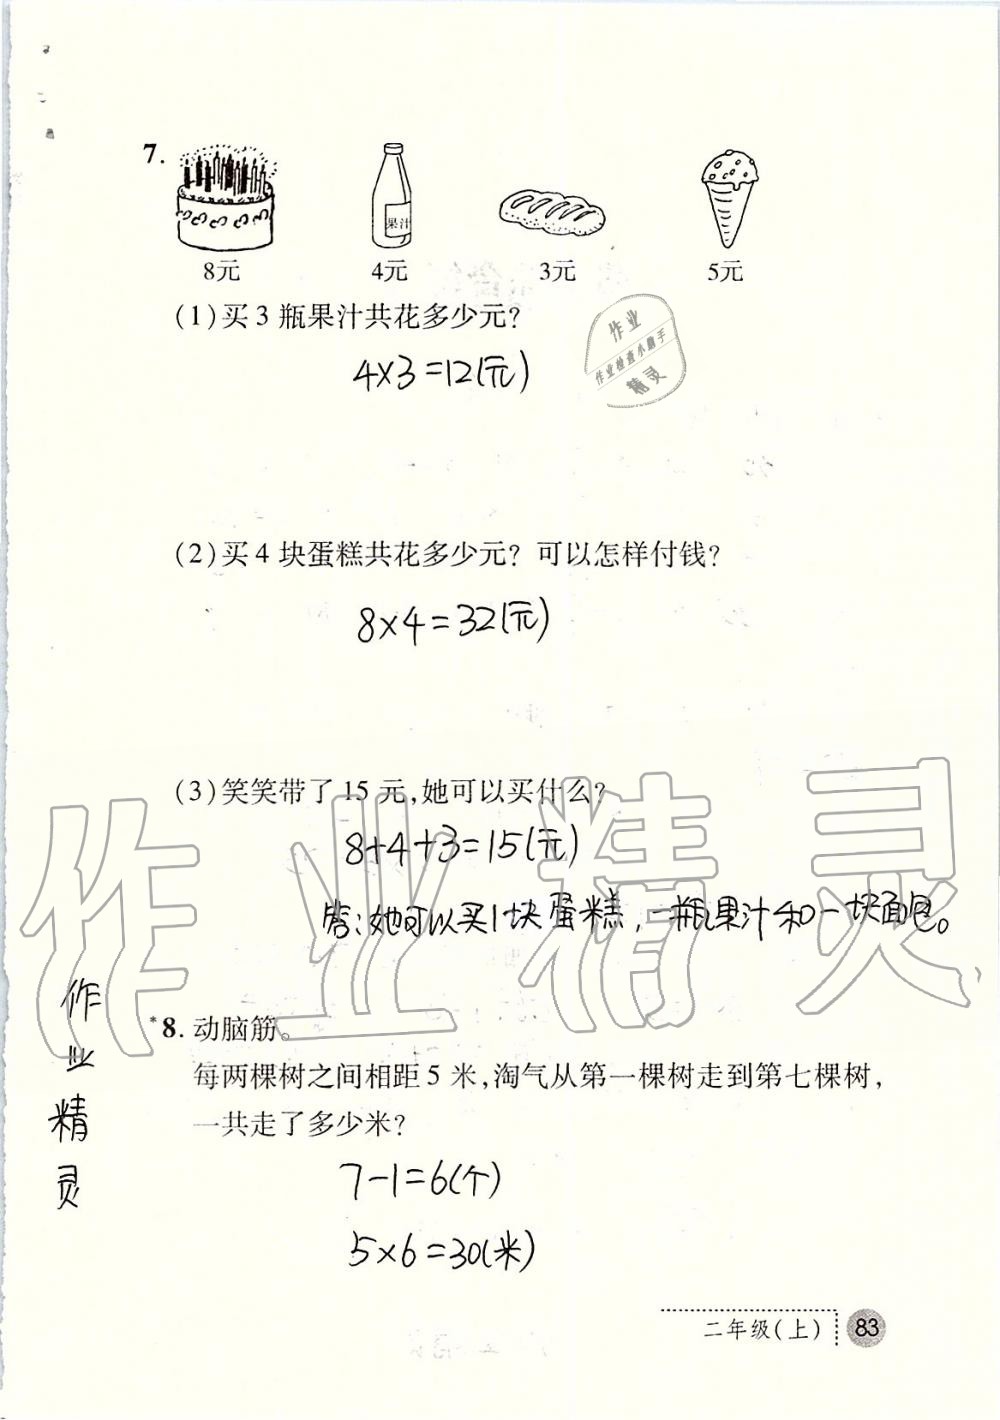 7.
果汁
8元 4元 3元 5元
(1)买3瓶果汁共花多少元?
4×3=12(元)
作业
作业检查小助手
精灵
(2)买4块蛋糕共花多少元? 可以怎样付钱?
8×4=32(元)
(3)笑笑带了15元,她可以买什么?
8+4+3=15(元)
答:她可以买1块蛋糕,一瓶果汁和一块面包。
作业精灵
作业精灵
*8. 动脑筋。
每两棵树之间相距5米,淘气从第一棵树走到第七棵树,
一共走了多少米?
7-1=6(个)
5×6=30(米)
二年级(上) 83